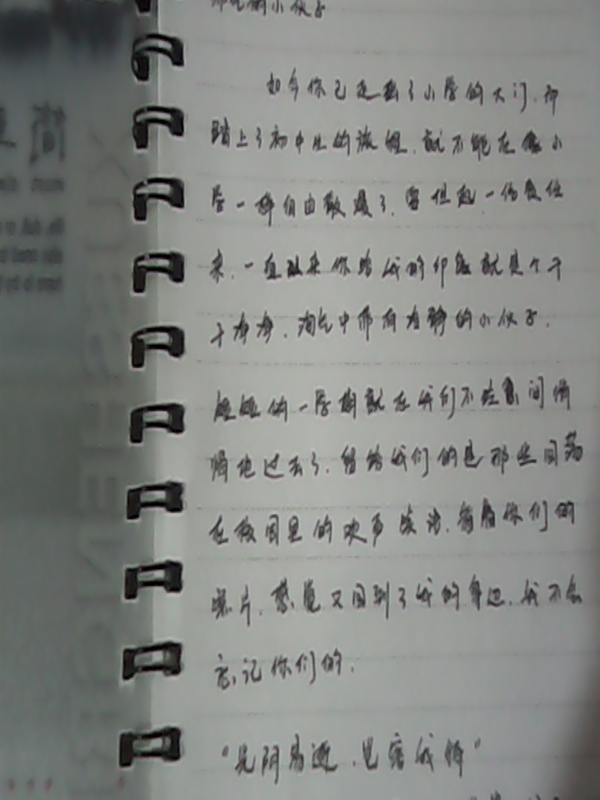 帅气的小伙子
如今你已走出了小学的大门，而
踏上了初中生的旅程，就不能在像小
学一样自由散漫了，要担起一份责任
来，一直以来你给我的印象就是个干
干净净，淘气中带有安静的小伙子，
短短的一学期就在我们不经意间悄
悄地过去了，留给我们的是那些回荡
在校园里的欢声笑语，看着你们的
照片，感觉又回到了我的身边，我不会
忘记你们的，
"光阴易逝，岂容我待"